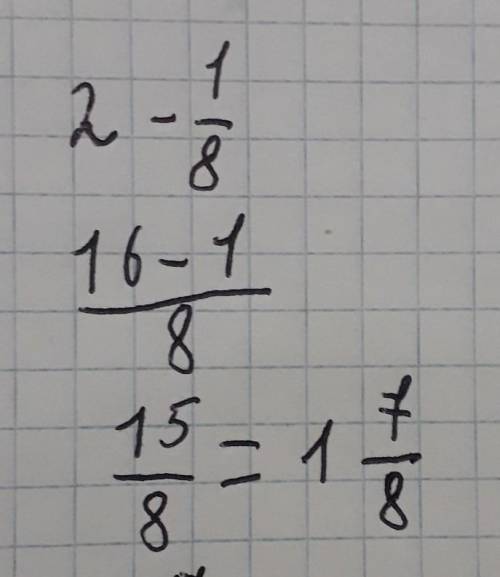 2 - 1/8
16 - 1/8
15/8 = 1 7/8